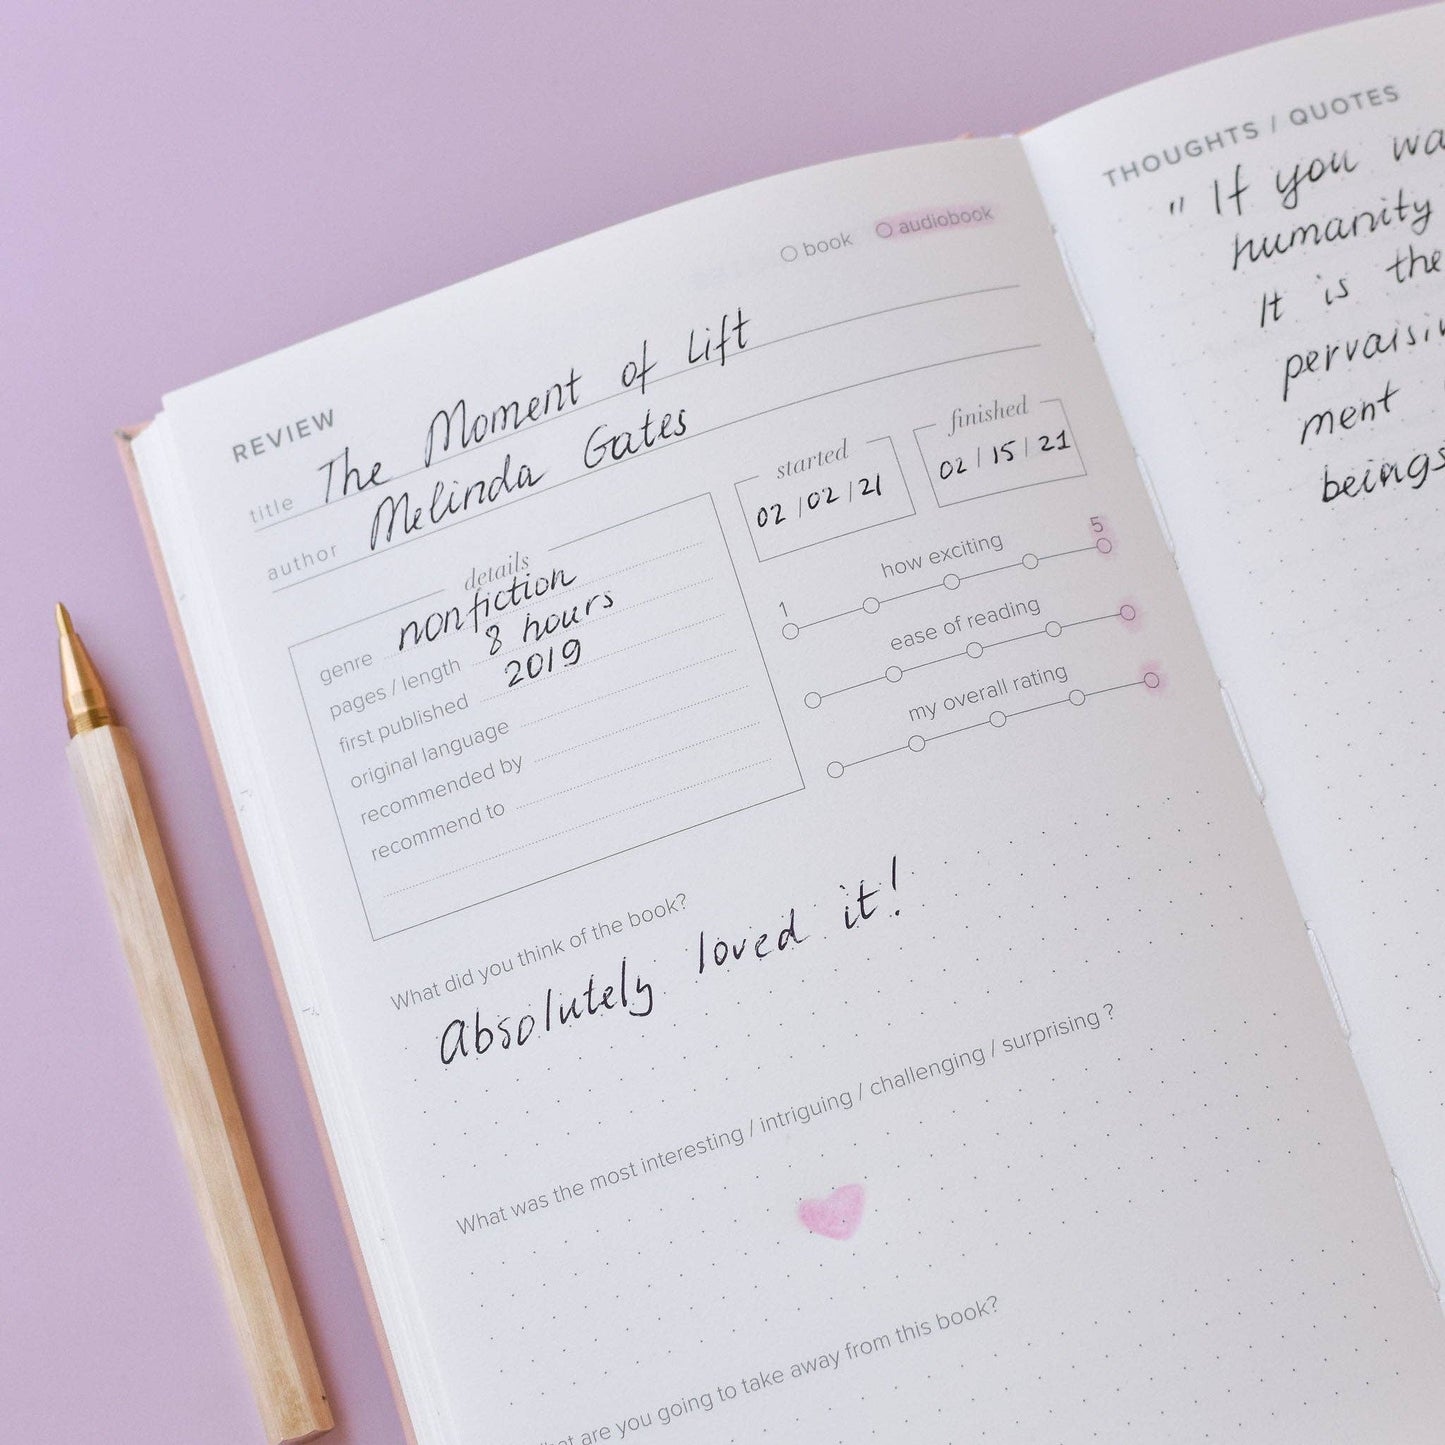 REVIEW
book audiobook
title The Moment of Lift
author Melinda Gates
details
genre nonfiction
pages / length 8 hours
first published 2019
original language
recommended by
recommend to
started
02 / 02 / 21
finished
02 / 15 / 21
how exciting
1 5
ease of reading
my overall rating
What did you think of the book?
Absolutely loved it!
What was the most interesting / intriguing / challenging / surprising ?
are you going to take away from this book?
THOUGHTS / QUOTES
" If you
humanity
It is the
ment
beings